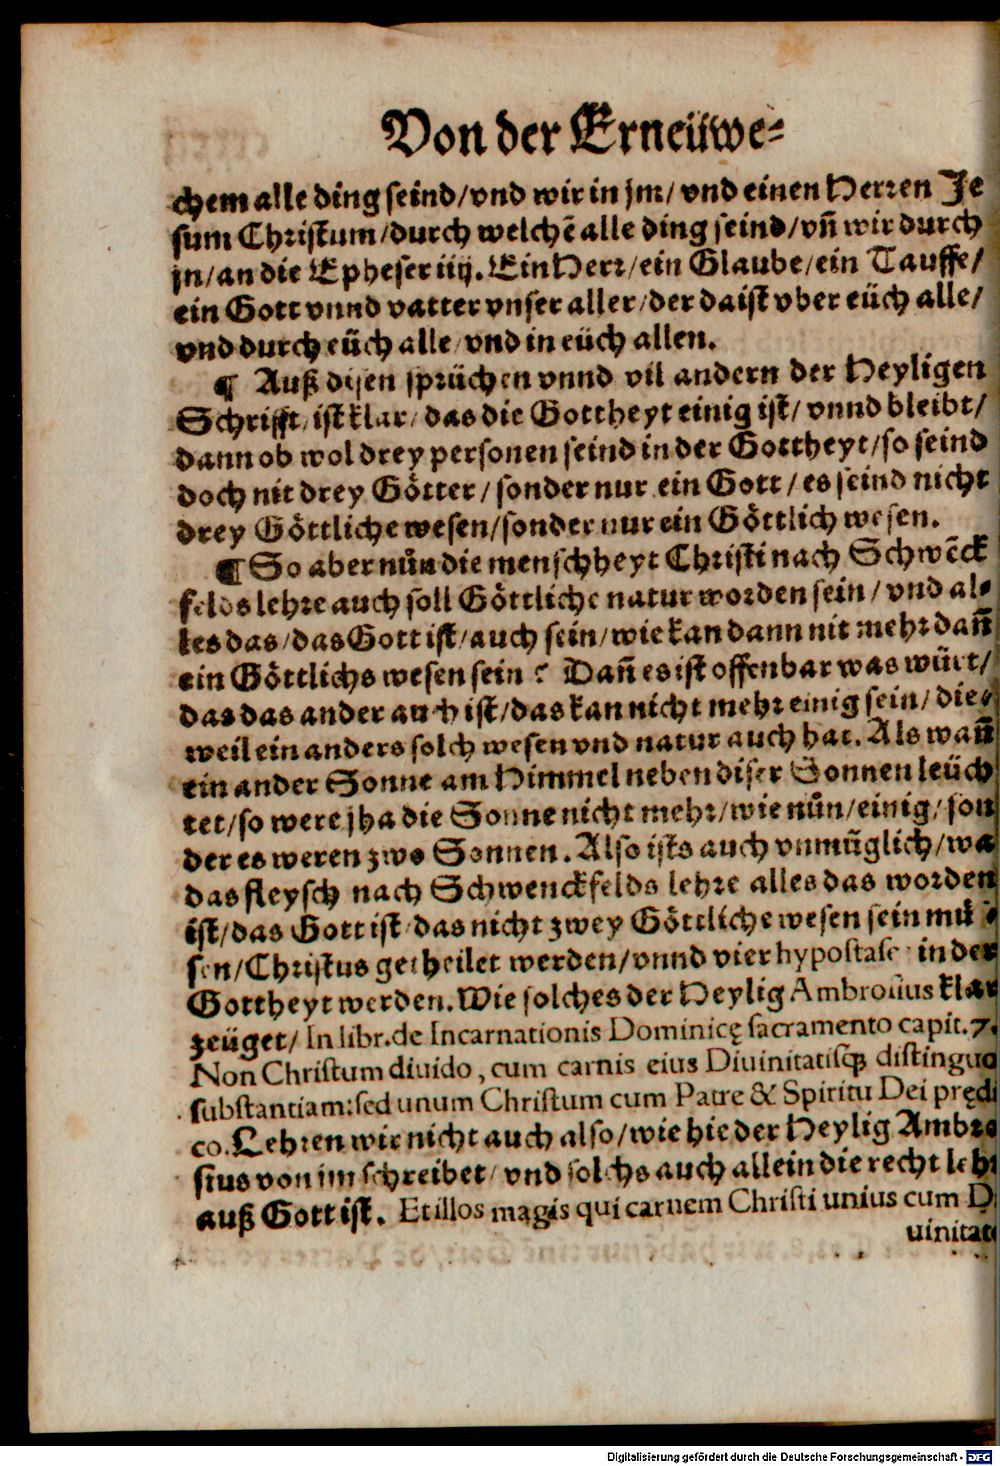 Von der Erneüwe-
chem alle ding seind/vnd wir in jm/ vnd einen Herren Je
sum Christum/durch welchē alle ding seind/vn̄ wir durch
jn/an die Epheser iiij. Ein Herr/ein Glaube/ein Tauffe/
ein Gott vnnd vatter vnser aller/der da ist vber eüch alle/
vnd durch eüch alle/vnd in eüch allen.
¶ Auß disen sprüchen vnnd vil andern der Heyligen
Schrifft/ist klar/das die Gottheyt einig ist/vnnd bleibt/
dann ob wol drey personen seind in der Gottheyt/so seind
doch nit drey Götter/sonder nur ein Gott/es seind nicht
drey Göttliche wesen/sonder nur ein Göttlich wesen.
¶ So aber nůn die menschheyt Christi nach Schwēck
felds lehre auch soll Göttliche natur worden sein/vnd al-
les das/das Gott ist/auch sein/wie kan dann nit mehr dan̄
ein Göttlichs wesen sein? Dan̄ es ist offenbar was würt/
das das ander auch ist/das kan nicht mehr einig sein/die-
weil ein anders solch wesen vnd natur auch hat. Als wan̄
ein ander Sonne am Himmel neben diser Sonnen leüch
tet/so were jha die Sonne nicht mehr/wie nůn/einig/son
der es weren zwo Sonnen. Also ists auch vnmüglich/wa
das fleysch nach Schwenckfelds lehre alles das worden
ist/das Gott ist/das nicht zwey Göttliche wesen sein mü
sen/Christus getheilet werden/vnnd vier hypostase in der
Gottheyt werden. Wie solches der Heylig Ambrosius klar
zeüget/ In libr. de Incarnationis Dominicę sacramento capit. 7.
Non Christum diuido, cum carnis eius Diuinitatisq; distinguo
substantiam: sed unum Christum cum Patre & Spiritu Dei prędi
co. Lehren wir nicht auch also/wie hie der Heylig Ambro
sius von im schreibet/vnd solchs auch allein die recht lehr
auß Gott ist. Et illos magis qui carnem Christi unius cum Di
uinitate
Digitalisierung gefördert durch die Deutsche Forschungsgemeinschaft - DFG